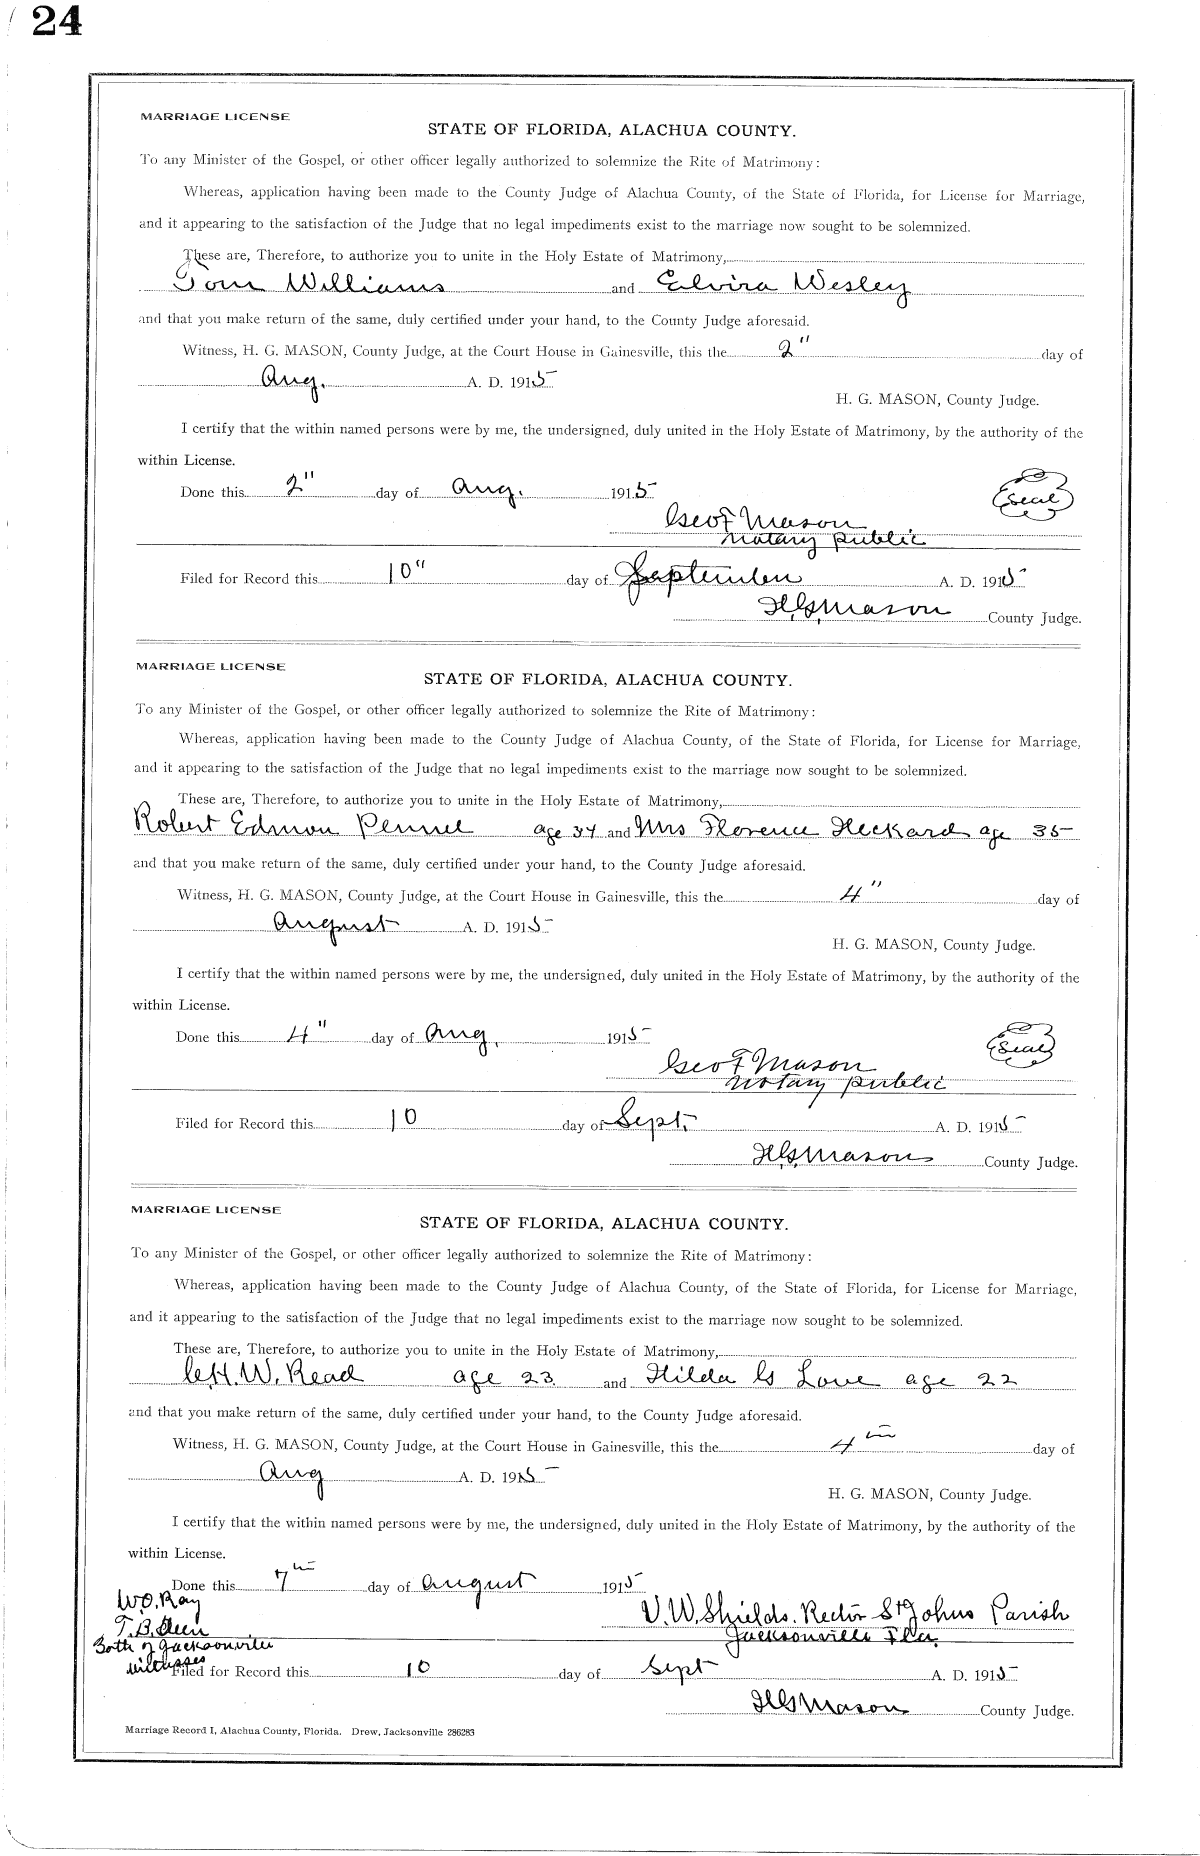 24
MARRIAGE LICENSE
STATE OF FLORIDA, ALACHUA COUNTY.
To any Minister of the Gospel, or other officer legally authorized to solemnize the Rite of Matrimony:
Whereas, application having been made to the County Judge of Alachua County, of the State of Florida, for License for Marriage,
and it appearing to the satisfaction of the Judge that no legal impediments exist to the marriage now sought to be solemnized.
These are, Therefore, to authorize you to unite in the Holy Estate of Matrimony,
Tom Williams and Elvira Wesley
and that you make return of the same, duly certified under your hand, to the County Judge aforesaid.
Witness, H. G. MASON, County Judge, at the Court House in Gainesville, this the 2" day of
Aug. A. D. 1915
H. G. MASON, County Judge.
I certify that the within named persons were by me, the undersigned, duly united in the Holy Estate of Matrimony, by the authority of the
within License.
Done this 2" day of Aug. 1915
Seal
Geo F Mason
Notary Public
Filed for Record this 10" day of September A. D. 1915
H.G. Mason County Judge.
MARRIAGE LICENSE
STATE OF FLORIDA, ALACHUA COUNTY.
To any Minister of the Gospel, or other officer legally authorized to solemnize the Rite of Matrimony:
Whereas, application having been made to the County Judge of Alachua County, of the State of Florida, for License for Marriage,
and it appearing to the satisfaction of the Judge that no legal impediments exist to the marriage now sought to be solemnized.
These are, Therefore, to authorize you to unite in the Holy Estate of Matrimony,
Robert Edmon Pennel age 34 and Mrs Florence Heckard age 35
and that you make return of the same, duly certified under your hand, to the County Judge aforesaid.
Witness, H. G. MASON, County Judge, at the Court House in Gainesville, this the 4" day of
August A. D. 1915
H. G. MASON, County Judge.
I certify that the within named persons were by me, the undersigned, duly united in the Holy Estate of Matrimony, by the authority of the
within License.
Done this 4" day of Aug. 1915
Seal
Geo F Mason
Notary public
Filed for Record this 10 day of Sept. A. D. 1915
H.G. Mason County Judge.
MARRIAGE LICENSE
STATE OF FLORIDA, ALACHUA COUNTY.
To any Minister of the Gospel, or other officer legally authorized to solemnize the Rite of Matrimony:
Whereas, application having been made to the County Judge of Alachua County, of the State of Florida, for License for Marriage,
and it appearing to the satisfaction of the Judge that no legal impediments exist to the marriage now sought to be solemnized.
These are, Therefore, to authorize you to unite in the Holy Estate of Matrimony,
W. Read age 23 and Hilda G Love age 22
and that you make return of the same, duly certified under your hand, to the County Judge aforesaid.
Witness, H. G. MASON, County Judge, at the Court House in Gainesville, this the 4th day of
Aug A. D. 1915
H. G. MASON, County Judge.
I certify that the within named persons were by me, the undersigned, duly united in the Holy Estate of Matrimony, by the authority of the
within License.
Done this 7th day of August 1915
W.O. Ray
T.B.
Both of Jacksonville
witnesses
V.W. Shields. Rector St Johns Parish
Jacksonville Fla.
Filed for Record this 10 day of Sept A. D. 1915
H G Mason County Judge.
Marriage Record I, Alachua County, Florida. Drew, Jacksonville 286283